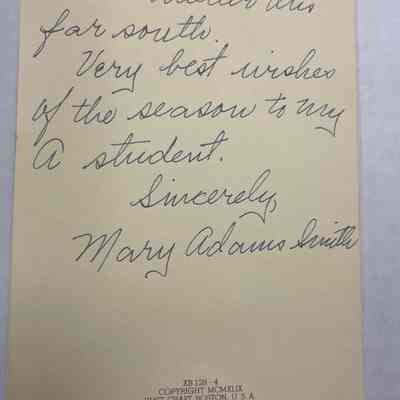 far south.
Very best wishes
of the season to my
A student.
Sincerely,
Mary Adams Smith
XB 128-4
COPYRIGHT MCMXLIX
CRAFT BOSTON, U. S. A.